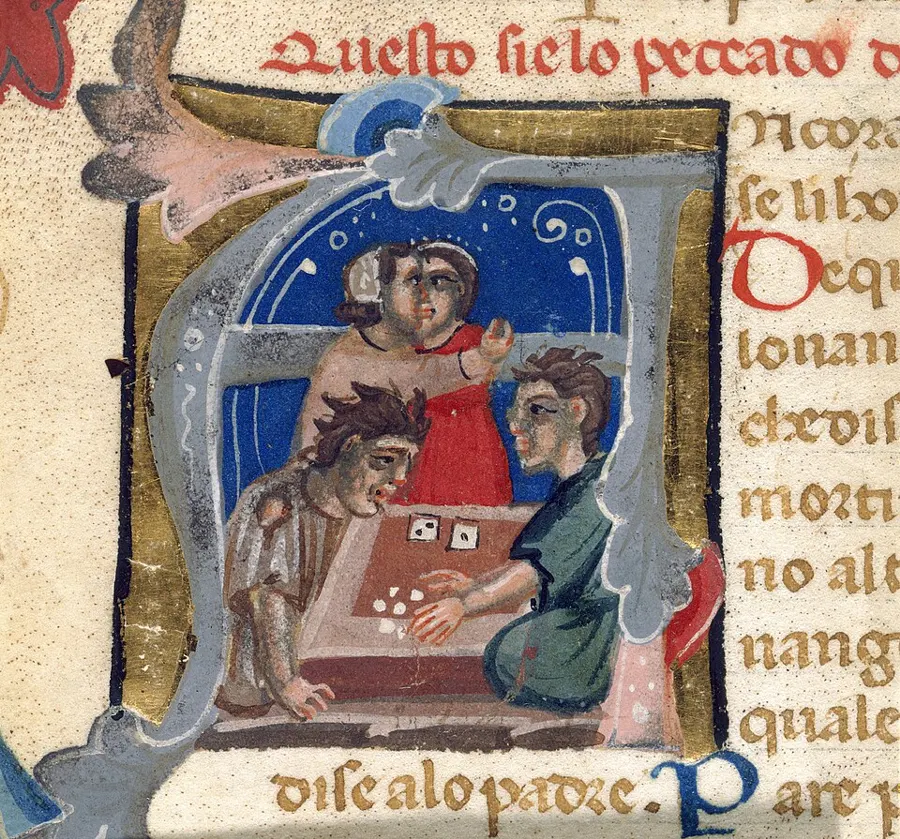 Questo sie lo peccado d
A
ncora
se li
Dequ
lonan
che dis
morti
no alt
nang
quale
dise alo padre. Pare p